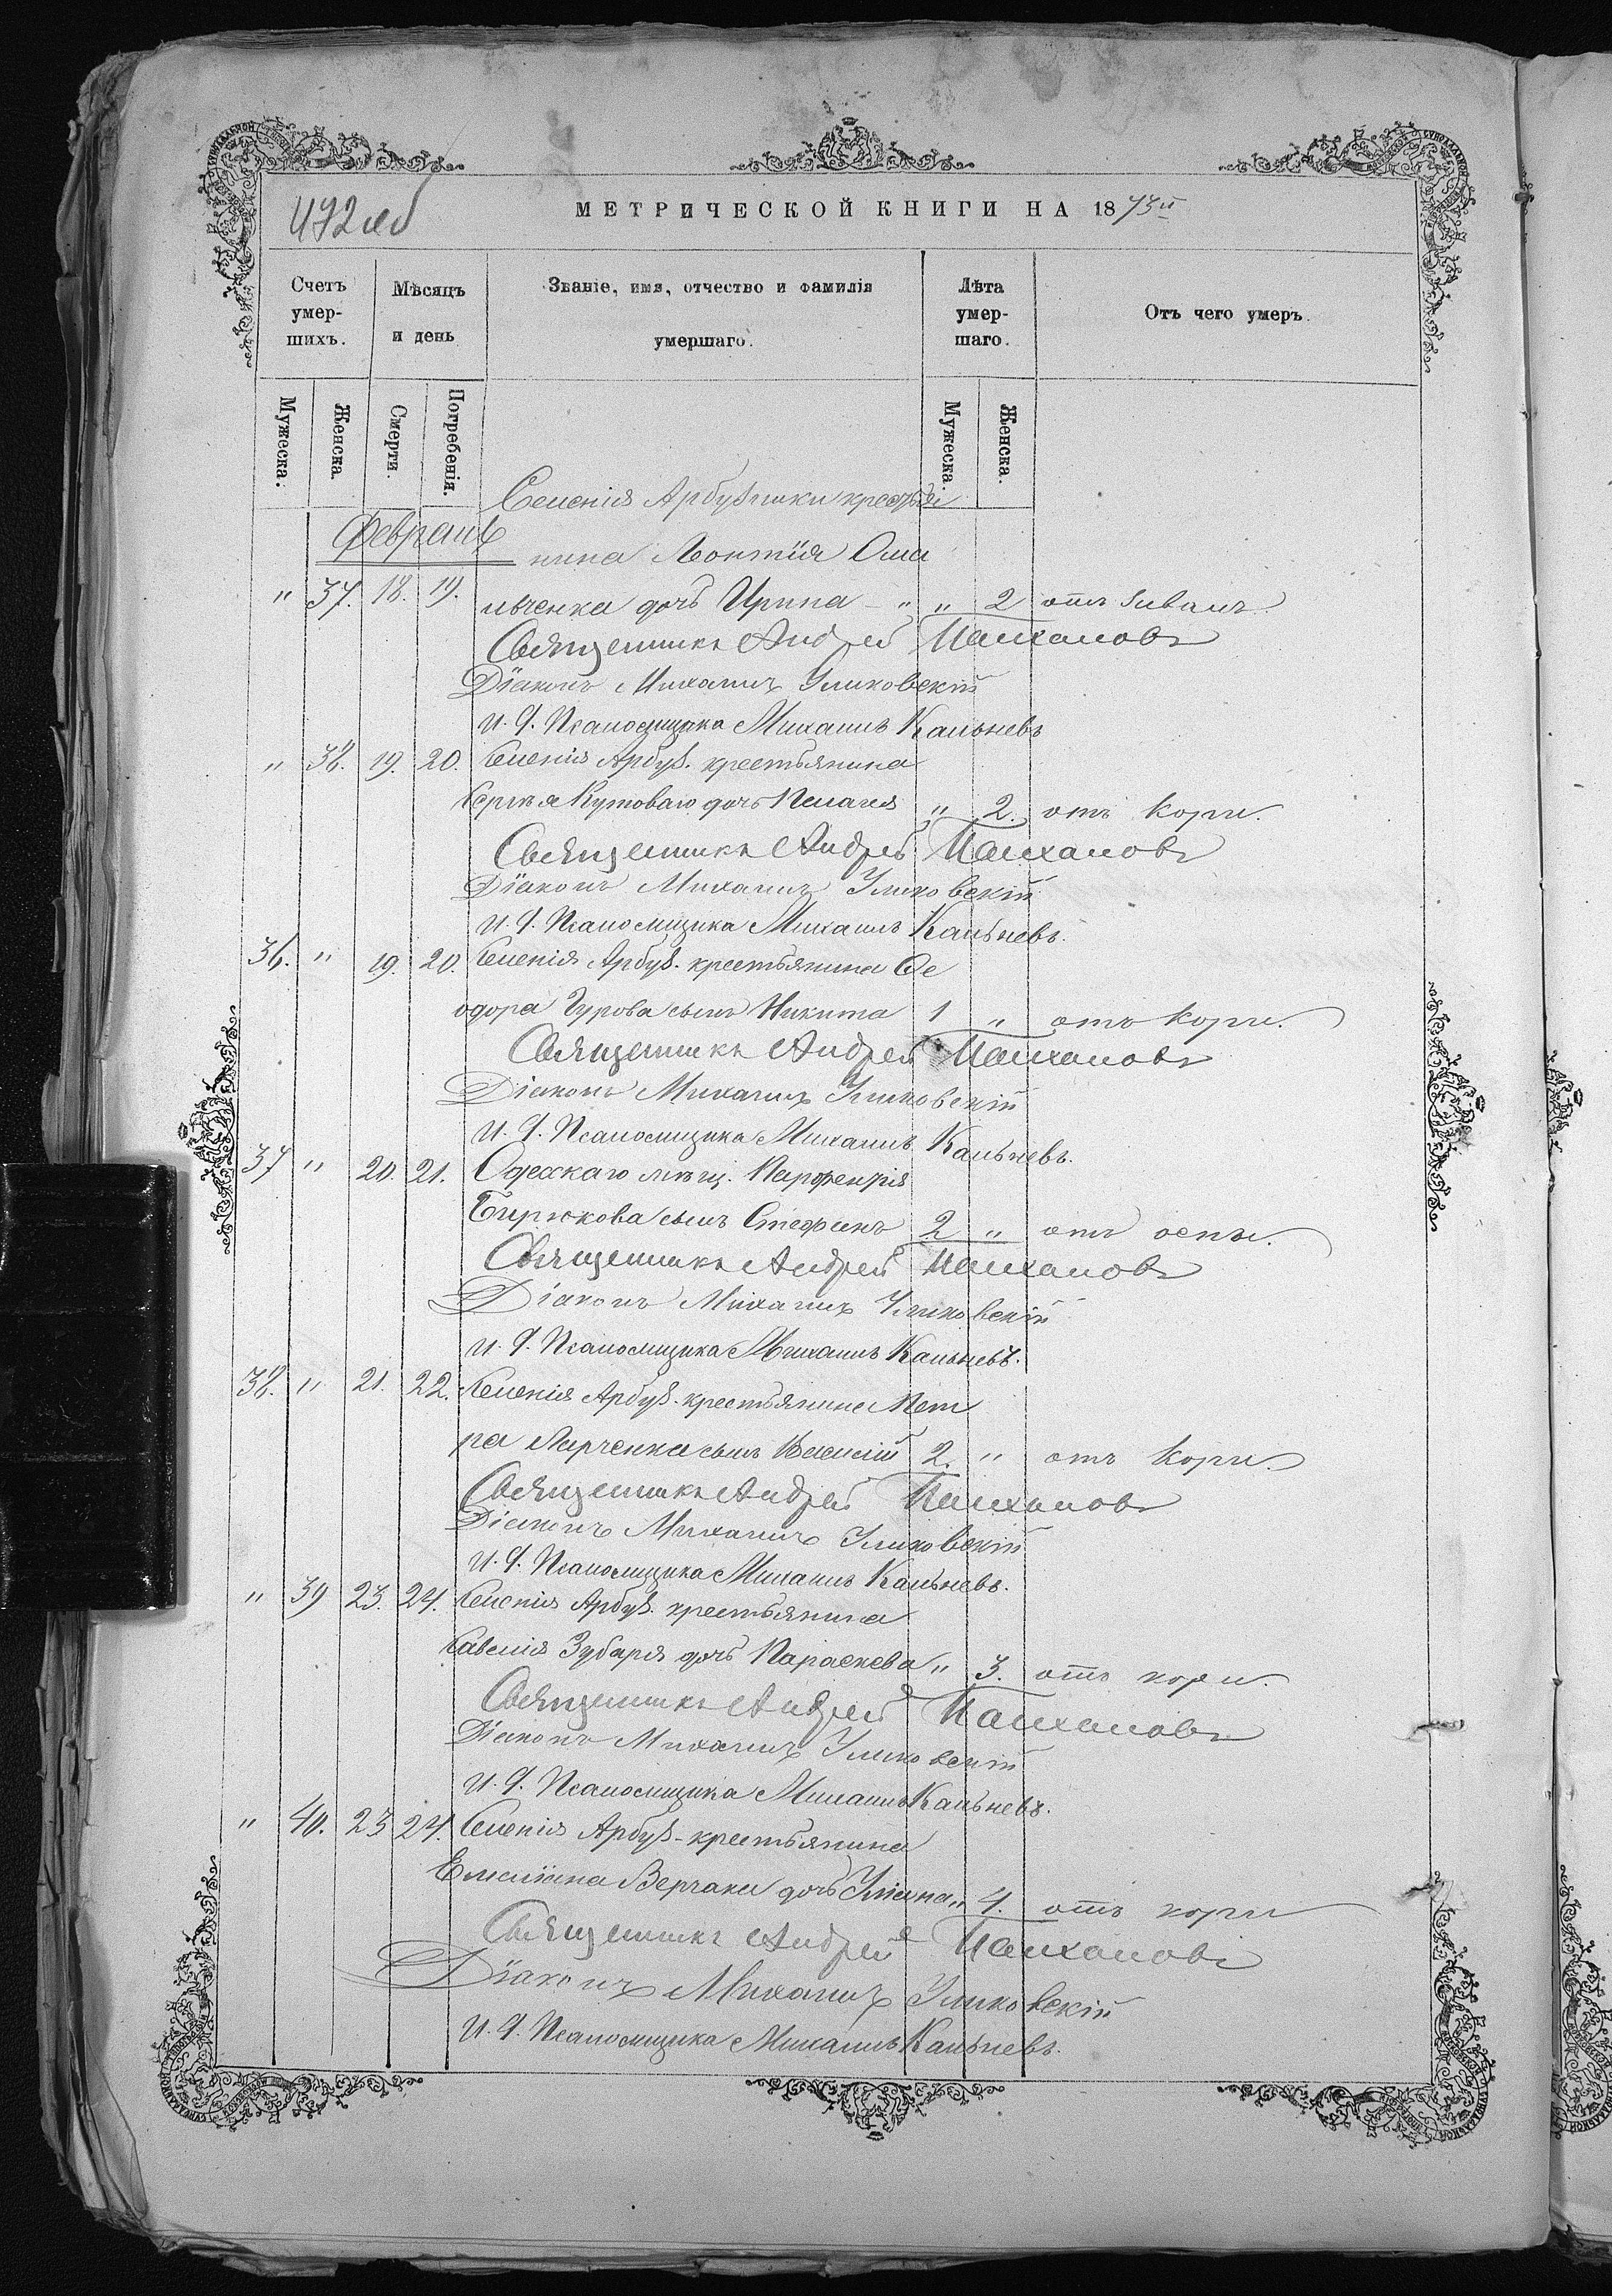 472 об
МЕТРИЧЕСКОЙ КНИГИ НА 1873й
Счетъ умер-шихъ.
Мѣсяцъ и день
Званіе, имя, отчество и фамилія умершаго.
Лѣта умер-шаго.
Отъ чего умеръ.
Мужеска.
Женска.
Смерти.
Погребенія.
Мужеска.
Женска.
Селенія Арбузинки крестья
Февраль
нина Леонтія Оме
" 37. 18. 19. льченка дочь Ирина " " 2 отъ
Священникъ Андрей
Діаконъ Михаилъ Уликовскій
И. Д. Псаломщика Михаилъ Кальневъ
" 38. 19. 20. Селенія Арбуз. крестьянина
Сергѣя Кутоваго дочь Пелагея " 2. отъ кори.
Священникъ Андрей
Діаконъ Михаилъ Уликовскій
И. Д. Псаломщика Михаилъ Кальневъ.
36. " 19. 20. Селенія Арбуз. крестьянина Ѳе
одора Гурова сынъ Никита 1 " отъ кори.
Священникъ Андрей
Діаконъ Михаилъ Уликовскій
И. Д. Псаломщика Михаилъ Кальневъ.
37 " 20. 21. Одесскаго мѣщ. Парфентія
Бирюкова сынъ Стефанъ 2 " отъ оспы.
Священникъ Андрей
Діаконъ Михаилъ Уликовскій
И. Д. Псаломщика Михаилъ Кальневъ.
38. " 21. 22. Селенія Арбуз. крестьянина Пет
ра Ларченка сынъ Василій 2. " отъ кори.
Священникъ Андрей
Діаконъ Михаилъ Уликовскій
И. Д. Псаломщика Михаилъ Кальневъ.
" 39 23. 24. Селенія Арбуз. крестьянина
Савелія Зубаря дочь Параскева " 3. отъ кори.
Священникъ Андрей
Діаконъ Михаилъ Уликовскій
И. Д. Псаломщика Михаилъ Кальневъ.
" 40. 23 24. Селенія Арбуз. крестьянина
Емеліана Верлака дочь Уліана " 4. отъ кори
Священникъ Андрей
Діаконъ Михаилъ Уликовскій
И. Д. Псаломщика Михаилъ Кальневъ.